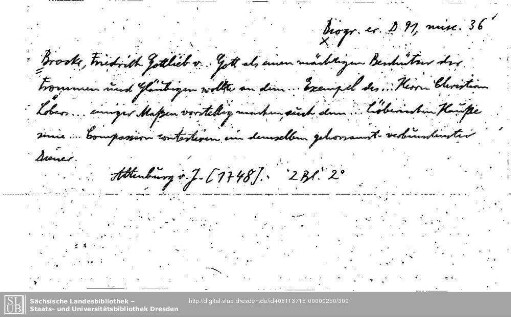 Biogr. er. D 91, misc. 36
Brock, Friedrich Gottlieb v. Gott als einen mächtigen Beschützer der
Frommen und Gläubigen wollte an dem... Exempel des... Herrn Christian
Löbers... einiger Maßen vorstellig machen, und dem... Löberischen Hauße
seine... Compassion contestiren ein demselben gehorsamst verbundenster
Diener.
Altenburg o. J. [1748]. 2 Bl. 2°
Sächsische Landesbibliothek –
Staats- und Universitätsbibliothek Dresden